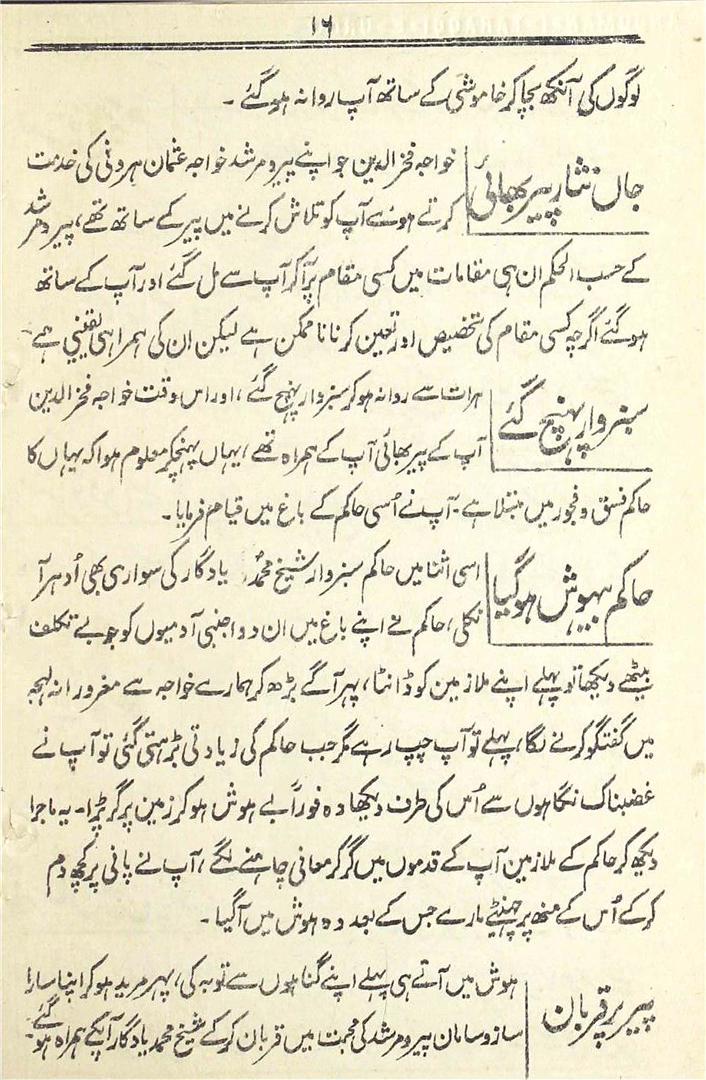 ۱۶
لوگوں کی آنکھ بچا کر خاموشی کے ساتھ آپ روانہ ہو گئے ۔
جاں نثار پیر بھائی
خواجہ فخرالدین جو اپنے پیر و مرشد خواجہ عثمان ہرونی کی خدمت
کرتے ہوئے آپ کو تلاش کرنے میں پیر کے ساتھ تھے، پیر و مرشد
کے حسب الحکم ان ہی مقامات میں کسی مقام پر آ کر آپ سے مل گئے اور آپ کے ساتھ
ہو گئے اگرچہ کسی مقام کی تخصیص اور تعین کرنا نا ممکن ہے لیکن ان کی ہمراہی یقینی ہے
سبزوار پہنچ گئے
ہرات سے روانہ ہو کر سبزوار پہنچ گئے ، اور اس وقت خواجہ فخرالدین
آپ کے پیر بھائی آپ کے ہمراہ تھے ، یہاں پہنچکر معلوم ہوا کہ یہاں کا
حاکم فسق و فجور میں مبتلا ہے ۔ آپ نے اُسی حاکم کے باغ میں قیام فرمایا ۔
حاکم بیہوش ہو گیا
اسی اثنا میں حاکم سبزوار شیخ محمدؐ یادگار کی سواری بھی اُدہر آ
نکلی ، حاکم نے اپنے باغ میں ان دو اجنبی آدمیوں کو جو بے تکلف
بیٹھے دیکھا تو پہلے اپنے ملازمین کو ڈانٹا، پہر آگے بڑھ کر ہمارے خواجہ سے مغرورانہ لہجہ
میں گفتگو کرنے لگا ، پہلے تو آپ چپ رہے مگر جب حاکم کی زیادتی بڑہتی گئی تو آپ نے
غضبناک نگاہوں سے اُس کی طرف دیکھا وہ فوراً بے ہوش ہو کر زمین پر گر پڑا ۔ یہ ماجرا
دیکھ کر حاکم کے ملازمین آپ کے قدموں میں گر گر معافی چاہنے لگے ، آپ نے پانی پر کچھ دم
کر کے اُس کے منھ پر چھینٹے مارے جس کے بعد وہ ہوش میں آ گیا ۔
پیر پر قربان
ہوش میں آتے ہی پہلے اپنے گناہوں سے توبہ کی، پہر مرید ہو کر اپنا سارا
ساز و سامان پیر و مرشد کی محبت میں قربان کر کے شیخ محمد یادگار آپکے ہمراہ ہو گئے ۔